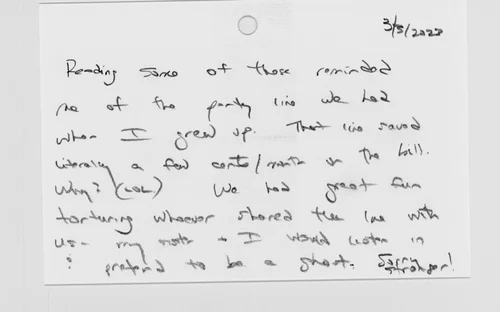 3/5/2023
Reading some of these reminded
me of the party line we had
when I grew up. That line saved
literally a few cents/month on the bill.
Why? (LOL) We had great fun
torturing whoever shared the line with
us - my sister + I would listen in
& pretend to be a ghost. Sorry
stranger!